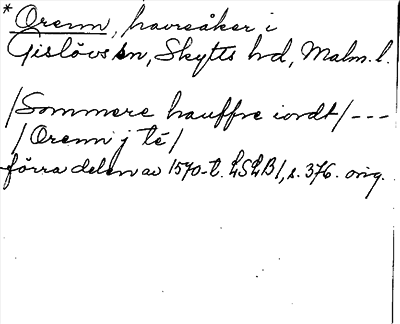 * Orenn, havreåker i
Gislövs sn, Skytts hd, Malm. l.
/Sommere hauffre iordt/ ---
/Orenn j té/
förra delen av 1570-t. LSLB 1, s. 376. orig.